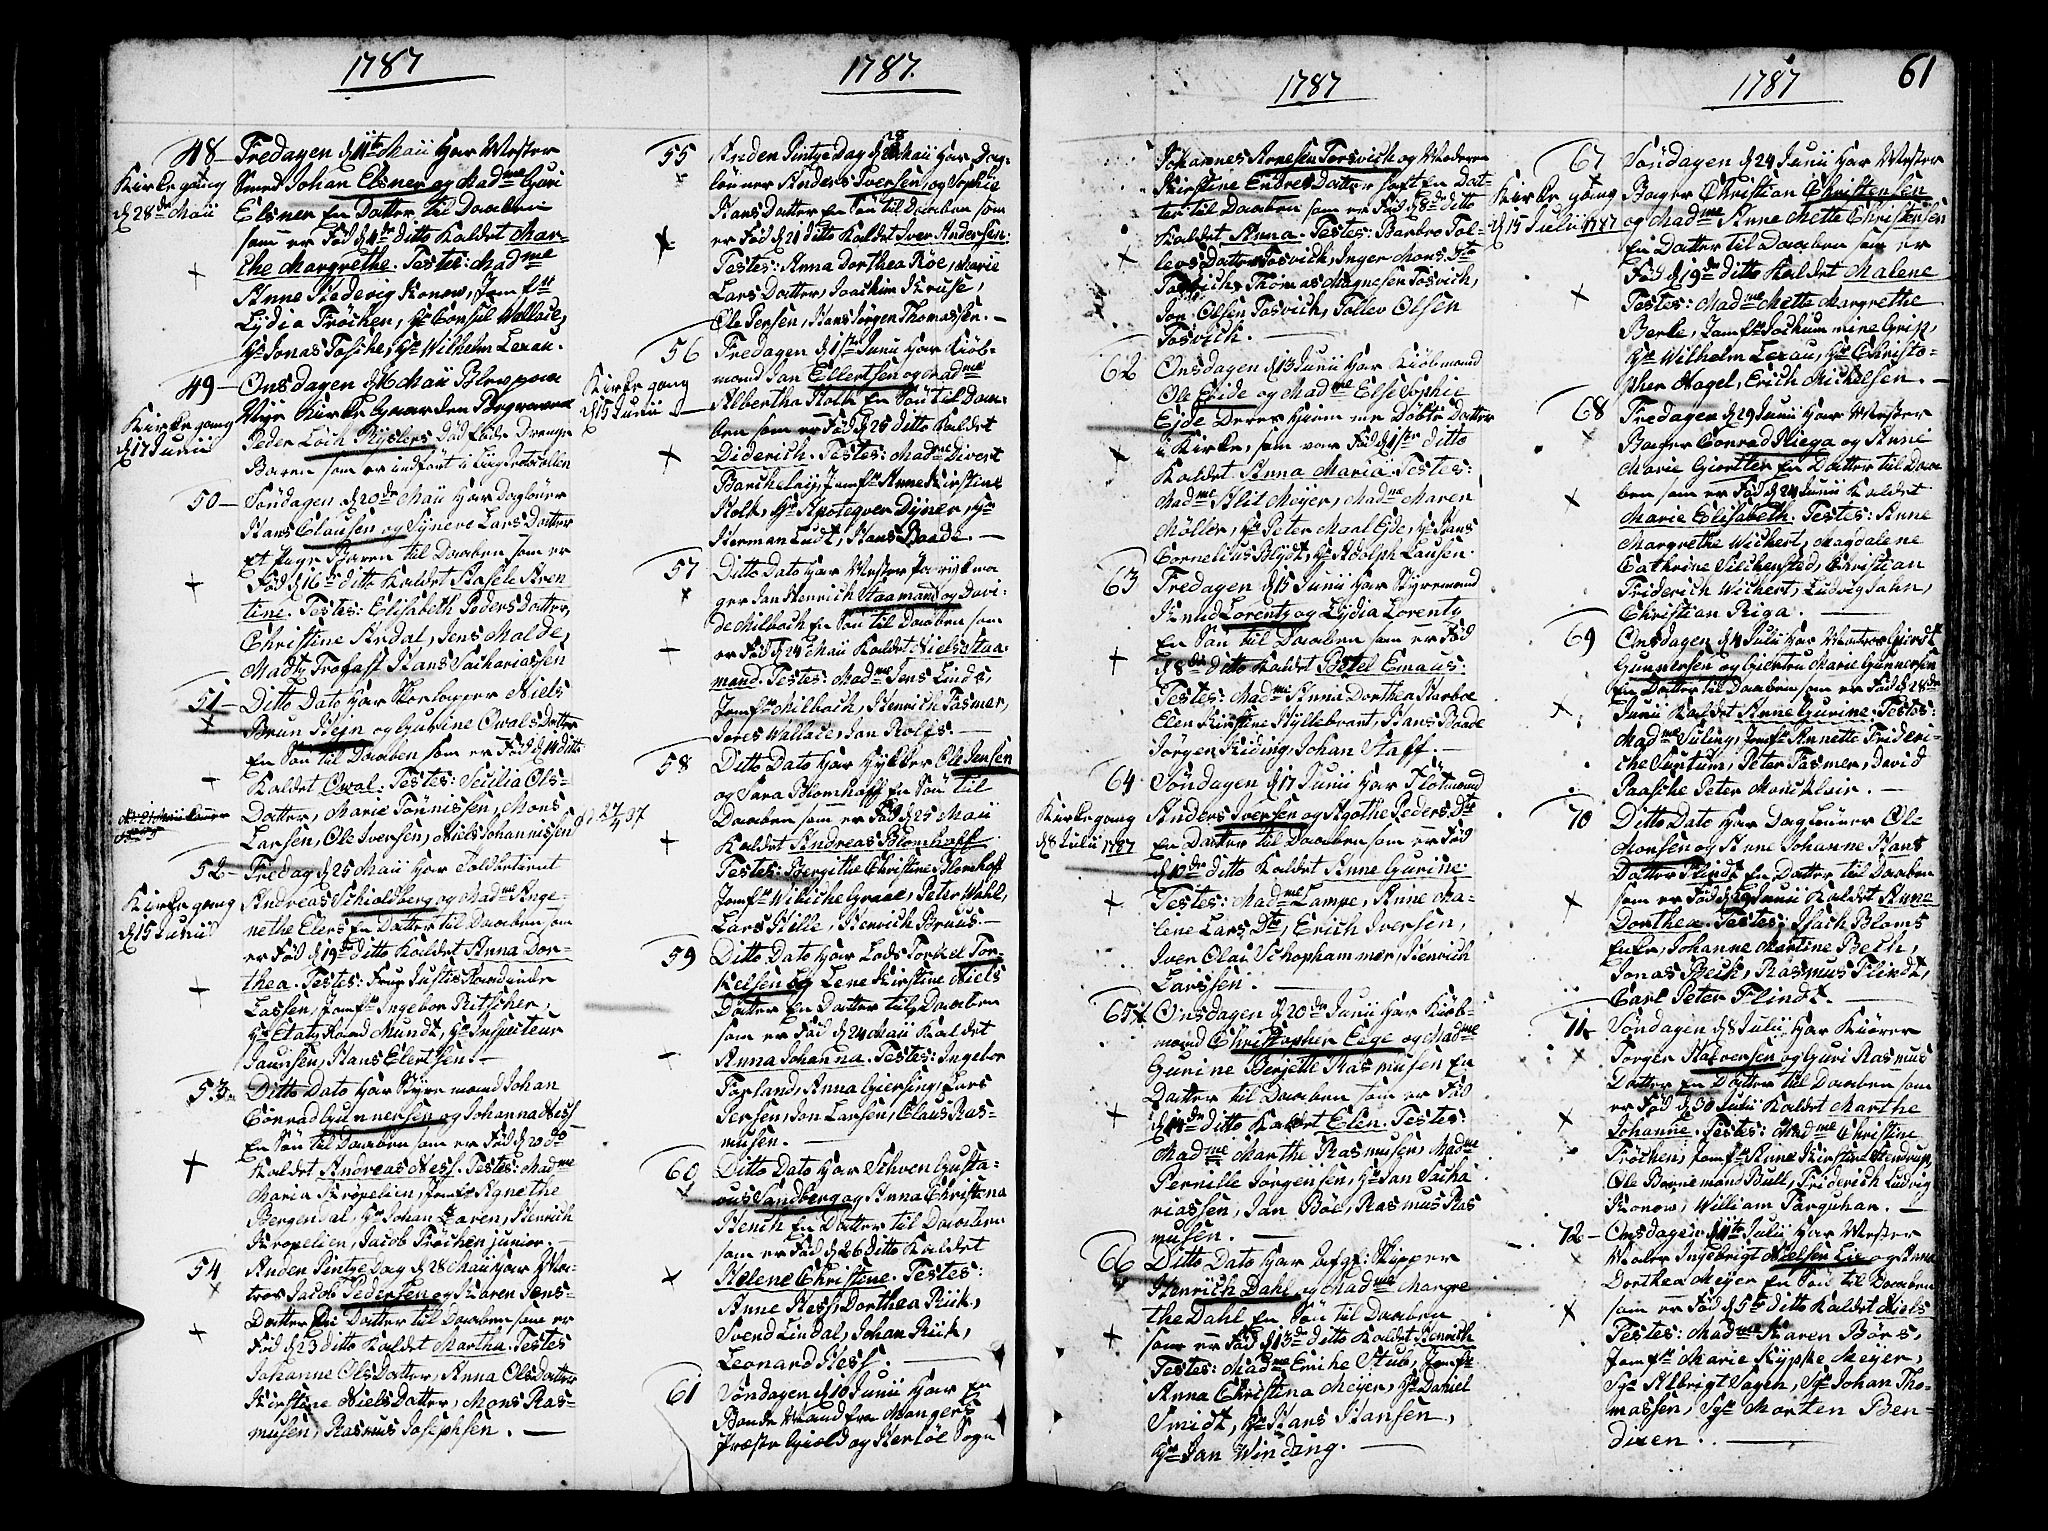 1787
48 – Fredagen d 11te Maii har Mester
Smed Johan Elsner og Madme Guri
Elsner En Datter til Daaben
som er Fød d 4de ditto Kaldet Mar-
the Margrethe. Testes: Madme
Anne Hedevig Konow, Jomfr
Lydia Frøchen, Hr Consul Wallace,
Hr Jonas Fasche, Hr Wilhelm Lexau.
Kirkegang
d 28de Maii
49 – Onsdagen d 16 Maii Blev paa
Nye Kirke Gaarden Begraven
Peder Løth Kyslers Død fødte Drenge
Baren som er indført i Liig Protocollen
Kirkegang
d 17 Junii
50 – Søndagen d 20de Maii har Dagløner
Hans Clausen og Syneve Lars Datter
Et Barn til Daaben som er
Fød d 16de ditto Kaldet
tine. Testes: Elisabeth Peders Datter,
Christine Ardal, Jens Molde,
Hans Sachariassen
51 – Ditto Dato har Niels
Brun Hejn og Gurine Owals Datter
En Søn til Daaben som er Fød d 14 ditto
Kaldet Owal. Testes: Secilia Ols-
Datter, Marie Tønnissen, Mons
Larsen, Ole Iversen, Niels Johannissen
52 – Fredag d 25 Maii har Toldbetient
Andreas Schioldberg og Madme Ange-
nethe Elers En Datter til Daaben som
er Fød d 19de ditto Kaldet Anna Dor-
thea. Testes: Frue Justis Raadinde
Lassen, Jomfr Ingebor Ritscher,
Hr Etatz Raad Mundt, Hr Inspecteur
Hans Elertsen. –
Kirkegang
d 15 Junii
53 Ditto Dato har Styrmand Johan
Conrad Gunnersen og Johanna Hess
En Søn til Daaben som er Fød d 20de
Kaldet Andreas Hess. Testes: Madme
Maria Krøpelien, Jomfr Agnethe
Bergendal, Hr Johan Garen, Henrich
Krøpelien, Jacob Frøchen junior. –
54 Anden Pintze Dag d 28 Maii har Ma-
tros Jacob Pedersen og Karen Jens-
Datter En Datter til Daaben som er
Fød d 23 ditto Kaldet Martha. Testes
Johanne Ols Datter, Anna Ols Datter
Kirstine Niels Datter, Mons Ras-
musen, Rasmus Josephsen. –
1787.
55 Anden Pintze Dag d 28 Maii har Dag-
løner Anders Iversen, og Sophie
Hans Datter En Søn til Daaben som
er Fød d 21 ditto Kaldet Iver Andersen:
Testes: Anna Dorthea Røe, Marie
Lars Datter, Joachim Kruse,
Ole Persen, Hans Jørgen Thomassen. –
56 Fredagen d 1ste Junii har Kiøb-
mand Jan Ellertsen og Madme
Albertha Holk En Søn til Daa-
ben som er Fød d 25 ditto Kaldet
Diderich. Testes: Madme Divert
Barchelaij, Jomfr Anne Kirstine
Holk, Hr Apoteqver Dijner, Hr
Herman Ludt, Hans Baade. –
Kirkegang
d 15 Junii
57 Ditto Dato har Mester Parykma
ger Jan Henrich Staamand og Davi-
de Milbach En Søn til Daaben som
er Fød d 24 Maii Kaldet Niels Staa-
mand. Testes: Madme Jens Lindt,
Jomfr Milbach, Henrich Fasmer,
Jores Wallace, Jan Rolfs. –
58 Ditto Dato har Hykker Ole Jensen
og Sara Blomhoff En Søn til
Daaben som er Fød d 25 Maii
Kaldet Andreas Blomhoff
Testes: Bergithe Christine Blomhoff
Jomfr Wibiche Graae, Peter Wahl,
Lars Hille, Henrich Bruus –
59 Ditto Dato har Lods Torkel Tor-
kelsen og Lene Kirstine Niels
Datter En Datter til Daaben
som er Fød d 24 Maii Kaldet
Anna Johanna. Testes: Ingebor
Forland, Anna Giersing, Lars
Jersen, Jon Larsen, Claus Ras-
musen. –
60 Ditto Dato har Schven Gusta-
vus Sandberg og Anna Christina
Hench En Datter til Daaben
som er Fød d 26 ditto Kaldet
Helene Christine. Testes:
Anne Hess, Dorthea Riik,
Svend Lindal, Johan Riik,
Leonard Hess. –
61 Søndagen d 10 Junii har En
Bonde Mand fra Mangers
Præste Giæld og Herløe Sogn
1787
Johannes Arnesen Tosvich og Moderen
Kirstine Endres Datter født En Dat-
ter til Daaben som er Fød d 8de ditto
Kaldet Anna. Testes: Barbro Tol-
levs Datter Tosvich, Inger Mons Dtr
Tosvich, Thomas Magnesen Tosvich,
Jon Olsen Tosvich, Tollev Olsen
Tosvich. –
62 Onsdagen d 13 Junii har Kiøbmand
Ole Eide og Madme Else Sophie
Ejde Deres Hiemme Døbte Datter
i Kirke, som var Fød d 1ste ditto
Kaldet Anna Maria. Testes:
Madme Alit Meyer, Madme Maren
Møller, Hr Peter Maal Ejde, Hr Hans
Cornelius Blijdt, Hr Adolph Lausen.
63 Fredagen d 15 Junii har Styremand
Knud Lorentz og Lydia Lorentz
En Søn til Daaben som er Fød
d 8de ditto Kaldet Betel Emaus:
Testes: Madme Anna Dorthea Harboe
Elen Kirstine Hyllebrant, Hans Baade
Jørgen Kiding, Johan Staff. –
64 Søndagen d 17 Junii har Flotmand
Anders Iversen og Agothe Peders Dtr
En Datter til Daaben som er Fød
d 10de ditto Kaldet Anne Gurine.
Testes: Madme Lampe, Anne Ma-
lene Lars Dtr, Erich Iversen,
Iver Olai Schophammer, Henrich
Larssen. –
Kirkegang
d 8 Julii 1787
65 Onsdagen d 20de Junii har Kiøb-
mand Christopher Eege og Madme
Gurine Berjette Rasmusen En
Datter til Daaben som er Fød
d 14de ditto Kaldet Elen. Testes:
Madme Marthe Rasmusen, Madme
Pernille Jørgensen, Hr Jan Sacha
riassen, Jan Bøe, Rasmus Ras
musen. –
66 Ditto Dato har Skipper
Henrich Dahl og Madme Margre
the Dahl En Søn til Daaben
som er Fød d 13de ditto Kaldet Henrich
Testes: Madme Emiche Stub, Jomfr
Anna Christina Meyer, Hr Daniel
Smidt, Hr Hans Hansen,
Hr Jan Winding. –
1787
61
67 Søndagen d 24 Junii har Mester
Bager Christian Christensen
og Madme Anne Mette Christensen
En Datter til Daaben som er
Fød d 19de ditto Kaldet Malene
Testes: Madme Mette Margrethe
Berke, Jomfr Jochumine Grip,
Hr Wilhelm Lexau, Hr Christo-
pher Nagel, Erich Michelsen. –
Kirkegang
d 15 Julii 1787
68 Fredagen d 29 Junii har Mester
Bager Conrad Riega og Anne
Marie Giertter En Datter til Daa
ben som er Fød d 24 Junii Kaldet
Marie Elisabeth. Testes: Anne
Margrethe Wichert, Magdalene
Cathrine Silchensted, Christian
Friderich Wichert, Ludvig Jahn,
Christian Riga. –
69 Onsdagen d 4 Julii har Matros Giert
Gunnersen og Giertru Marie Gunnersen
En Datter til Daaben som er Fød d 28de
Junii Kaldet Anne Gurine. Testes:
Madme Suling, Jomfr Annette Frideri-
che Suntum, Peter Fasmer, David
Paasche Peter Moncklair. –
70 Ditto Dato har Dagløner Ole
Monsen og Anne Johanne Hans
Datter Flindt En Datter til Daaben
som er Fød d 29 Junii Kaldet Anne
Dorthea. Testes: Isach Bloms
Enke, Johanne Martine Bech,
Jonas Beck, Rasmus Flindt,
Carl Peter Flindt. –
71 Søndagen d 8 Julii har Kiører
Torger Halvorsen og Guri Rasmus
Datter En Datter til Daaben som
er Fød d 30 Julii Kaldet Marthe
Johanne. Testes: Madme Christine
Frøchen, Jomfr Anne Kirstine Stendrup,
Ole Bornemand Bull, Friderich Ludvig
Konow, William Farquhar. –
72 – Onsdagen d 11te Julii har Mester
Maler Ingebrigt Nielsen Lie og Anna
Dorthea Meyer En Søn til Daaben
som er Fød d 5te ditto Kaldet Niels
Testes: Madme Karen Børs,
Jomfr Marie Kypke Meyer,
Sr Albrigt Sagen, Sr Johan Tho-
massen, Sr Morten Ben-
dixen. . –